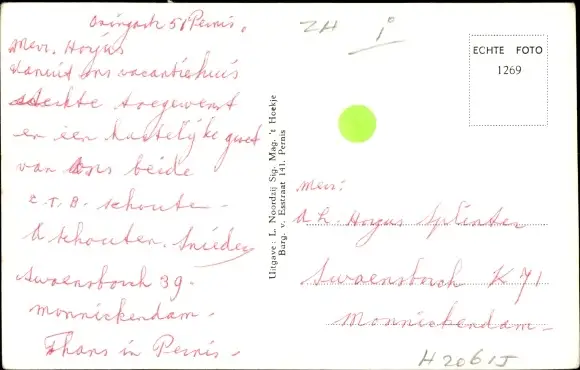 51 Pernis.
Mevr. Hoyus
vanuit ons vacantiehuis
sterkte toegewenst
en een hartelijke groet
van ons beide
E.T.B. Schoute -
A Schouten. Snieder
Swaensborch 39.
Monnickendam -
Thans in Pernis -
Uitgave: L. Noordzij Sig. Mag. 't Hoekje
Burg. v. Esstraat 141, Pernis
ZH i
ECHTE FOTO
1269
Mevr:
A.h. Hoyus Splinter
Swaensborch K 71
Monnickendam -
H2061J